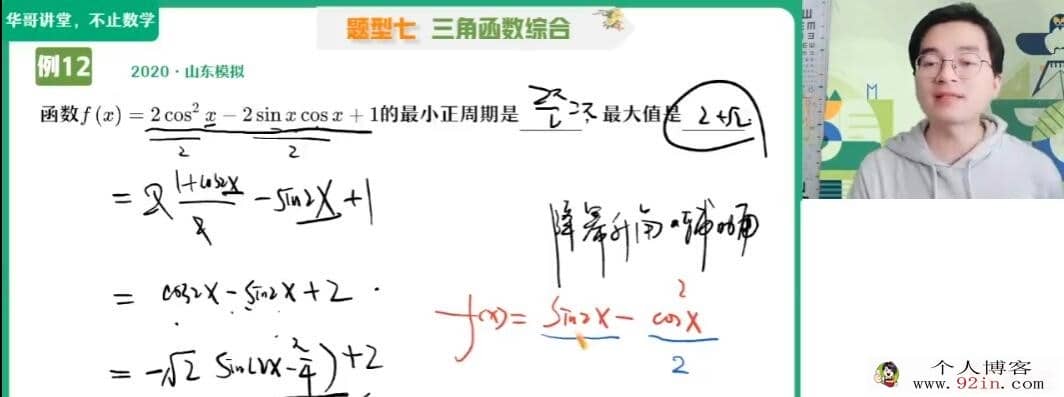 华哥讲堂，不止数学
题型七 三角函数综合
例12 2020·山东模拟
函数f(x)=2cos²x-2sinxcosx+1的最小正周期是 2π/2=π 最大值是 2+√2
2 2
=2 (1+cos2x)/2 - sin2x+1
降幂升角
= cos2x-sin2x+2
f(x)= sin2x - cos²x
2
= -√2 sin(2x-π/4)+2
个人博客
www.92in.com